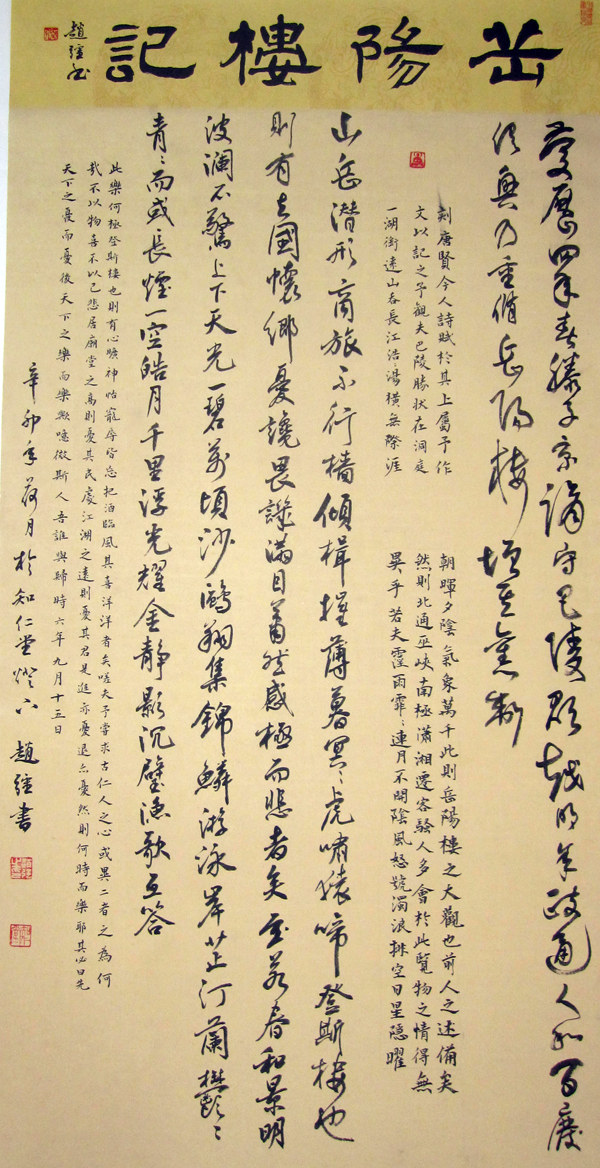 岳陽樓記
趙經書
慶曆四年春滕子京謫守巴陵郡越明年政通人和百廢
俱興乃重脩岳陽樓增其舊制
刻唐賢今人詩賦於其上屬予作
文以記之予觀夫巴陵勝狀在洞庭
一湖銜遠山吞長江浩湯橫無際涯
朝暉夕陰氣象萬千此則岳陽樓之大觀也前人之述備矣
然則北通巫峽南極瀟湘遷客騷人多會於此覽物之情得無
異乎若夫霪雨霏〻連月不開陰風怒號濁浪排空日星隱曜
山岳潛形商旅不行檣傾楫摧薄暮冥〻虎嘯猿啼登斯樓也
則有去國懷鄉憂讒畏譏滿目蕭然感極而悲者矣至若春和景明
波瀾不驚上下天光一碧萬頃沙鷗翔集錦鱗游泳岸芷汀蘭鬱〻
青〻而或長煙一空皓月千里浮光耀金靜影沉璧漁歌互答
此樂何極登斯樓也則有心曠神怡寵辱皆忘把酒臨風其喜洋洋者矣嗟夫予嘗求古仁人之心或異二者之為何
哉不以物喜不以己悲居廟堂之高則憂其民處江湖之遠則憂其君是進亦憂退亦憂然則何時而樂耶其必曰先
天下之憂而憂後天下之樂而樂歟噫微斯人吾誰與歸時六年九月十五日
辛卯年荷月於知仁堂燈下 趙經書